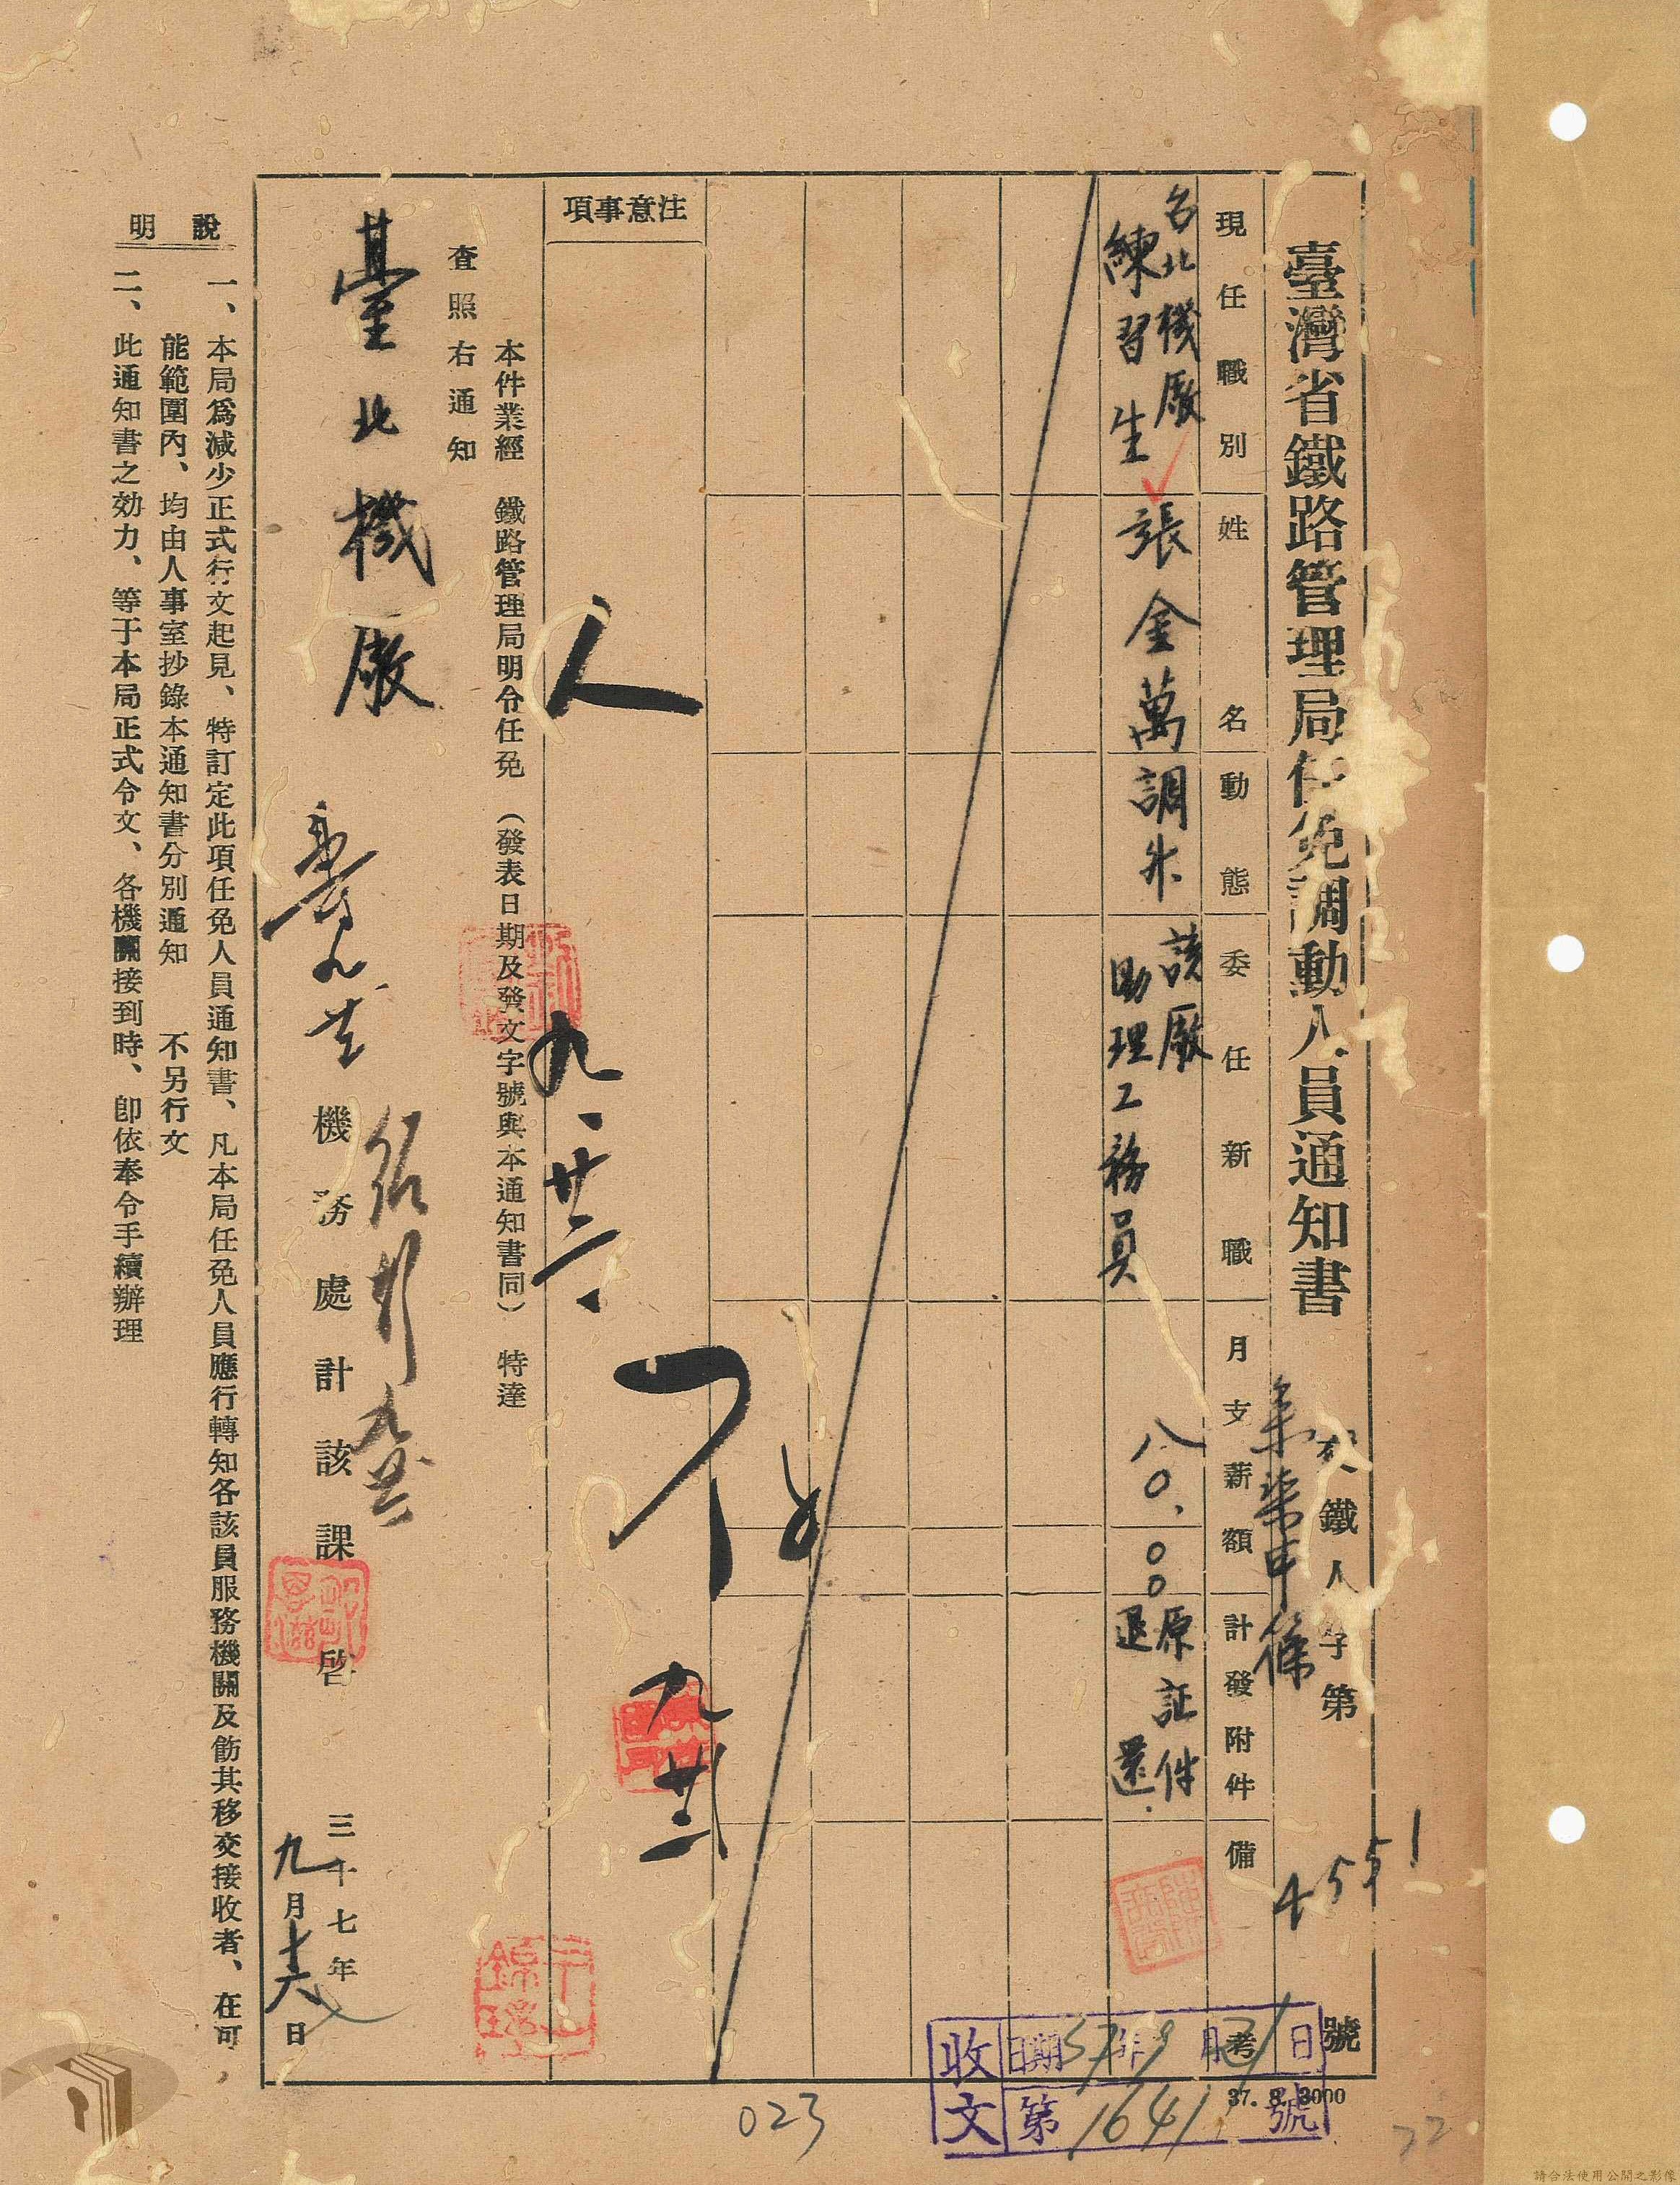 臺灣省鐵路管理局任免調動人員通知書
鐵人字第4551號
現任職別
姓名
動態
委任新職
月支薪額
計發附件
備考
台北機廠
練習生
張金萬
調升
該廠
助理工務員
八〇.〇〇
原証件
退還
注意事項
人
九、廿二、
九廿二
本件業經 鐵路管理局明令任免 (發表日期及發文字號與本通知書同) 特達
查照右通知
臺北機廠
機務處計該課啓
三十七年
九月十六日
說明
一、本局爲減少正式行文起見、特訂定此項任免人員通知書、凡本局任免人員應行轉知各該員服務機關及飭其移交接收者、在可
能範圍內、均由人事室抄錄本通知書分別通知 不另行文
二、此通知書之効力、等于本局正式令文、各機關接到時、卽依奉令手續辦理
收文
日期37年9月21日
第1641號
37. 8. 3000
023
22
請合法使用公開之影像